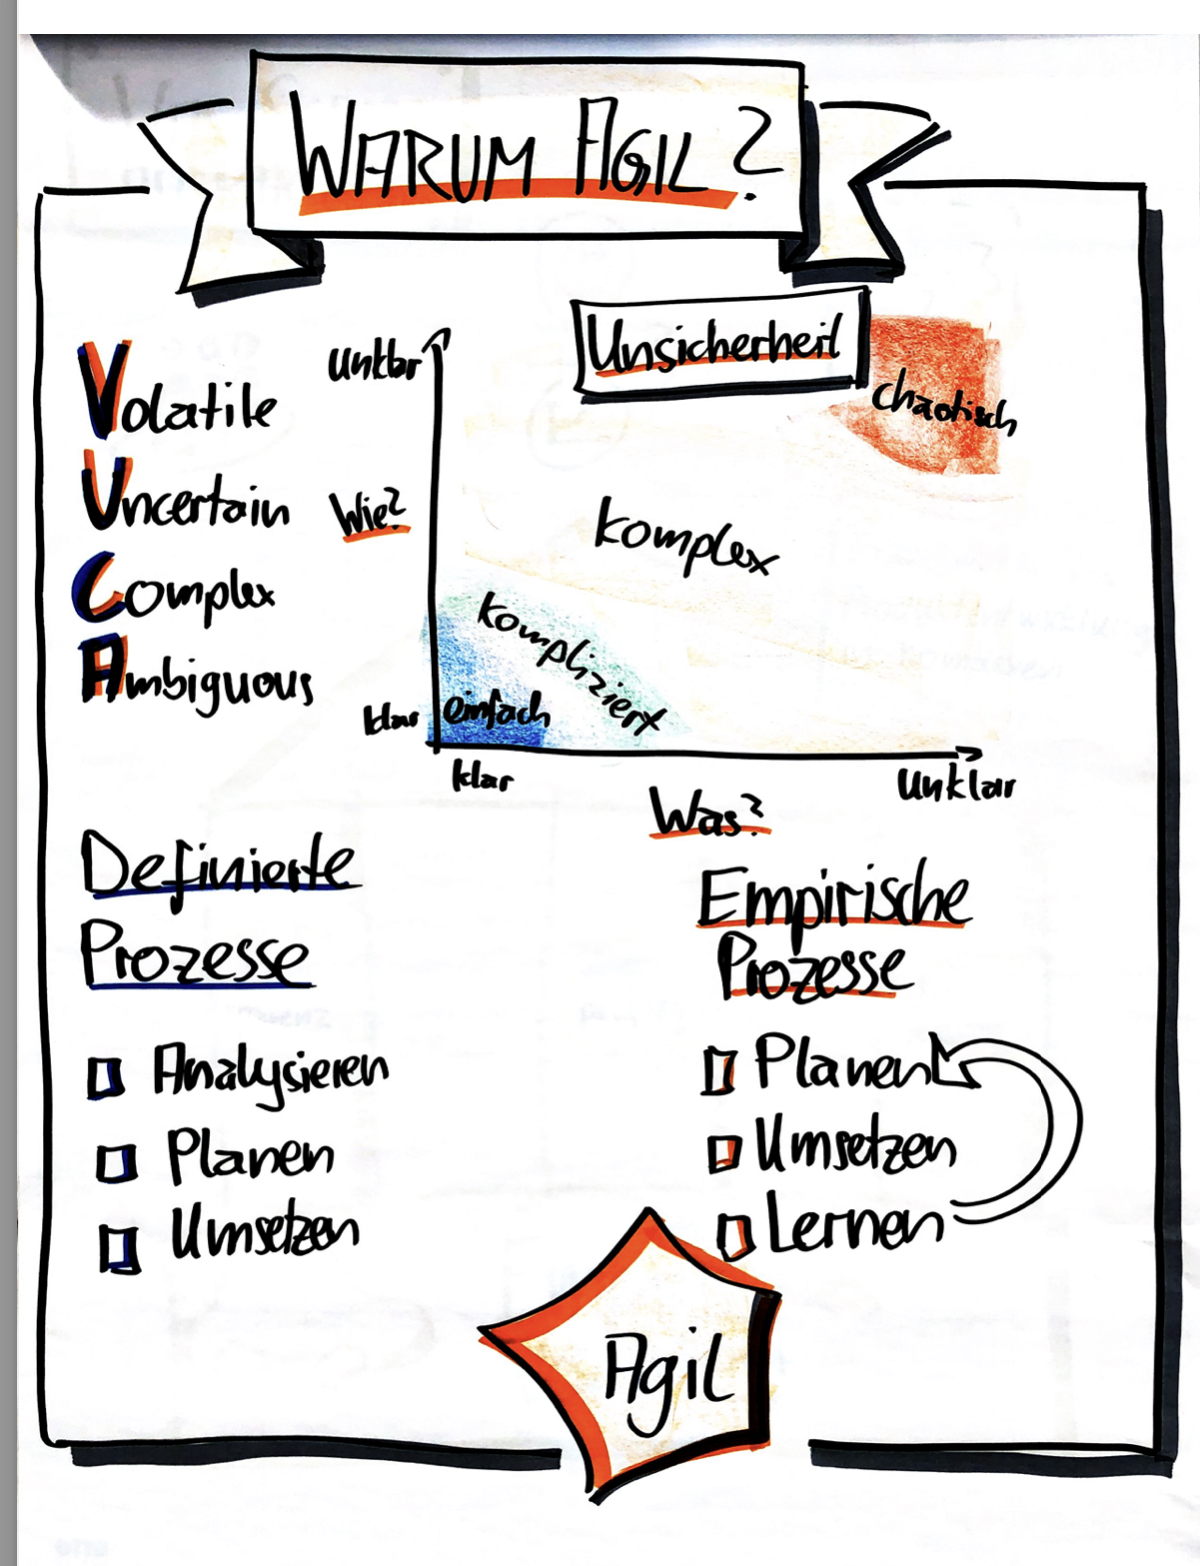 WARUM AGIL?
Volatile
Uncertain
Complex
Ambiguous
Unsicherheit
unklar
Wie?
klar
chaotisch
komplex
kompliziert
einfach
klar
unklar
Was?
Definierte
Prozesse
Analysieren
Planen
Umsetzen
Empirische
Prozesse
Planen
Umsetzen
Lernen
Agil